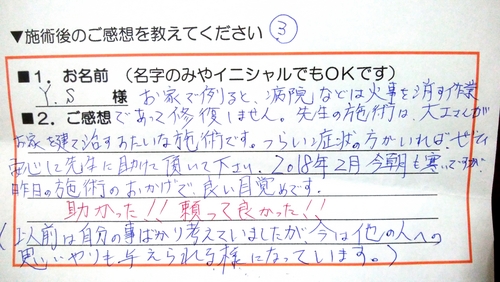 ▼施術後のご感想を教えてください ③
■1．お名前（名字のみやイニシャルでもOKです）
Y.S 様 お家で例ると、病院などは火事を消す作業
■2．ご感想 であって修復しません。先生の施術は、大工さんが
お家を建て治すみたいな施術です。つらい症状の方がいれば、ぜひ
安心して先生に助けて頂いて下さい。2018年2月今朝も寒いですが
昨日の施術のおかげで良い目覚めです。
助かった!! 頼って良かった!!
(以前は自分の事ばかり考えていましたが、今は他の人への
思いやりも、与えられる様になっています。)